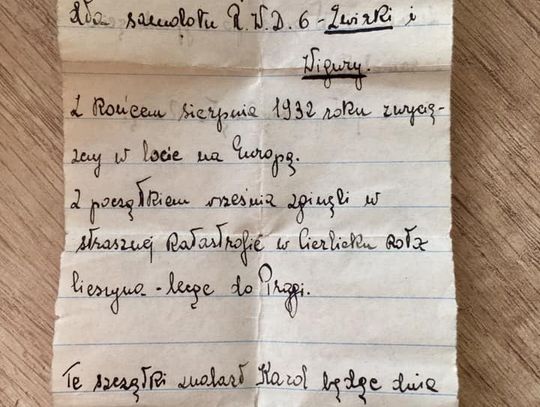 dła samolotu R.W.D. 6 - Żwirki i
Wigury.
Z końcem sierpnia 1932 roku zwycię-
zcy w locie na Europą.
Z początkiem września zginęli w
strasznej katastrofie w Cierlicku koło
Cieszyna - lecąc do Pragi.
Te szczątki znalazł Karol będąc dnia